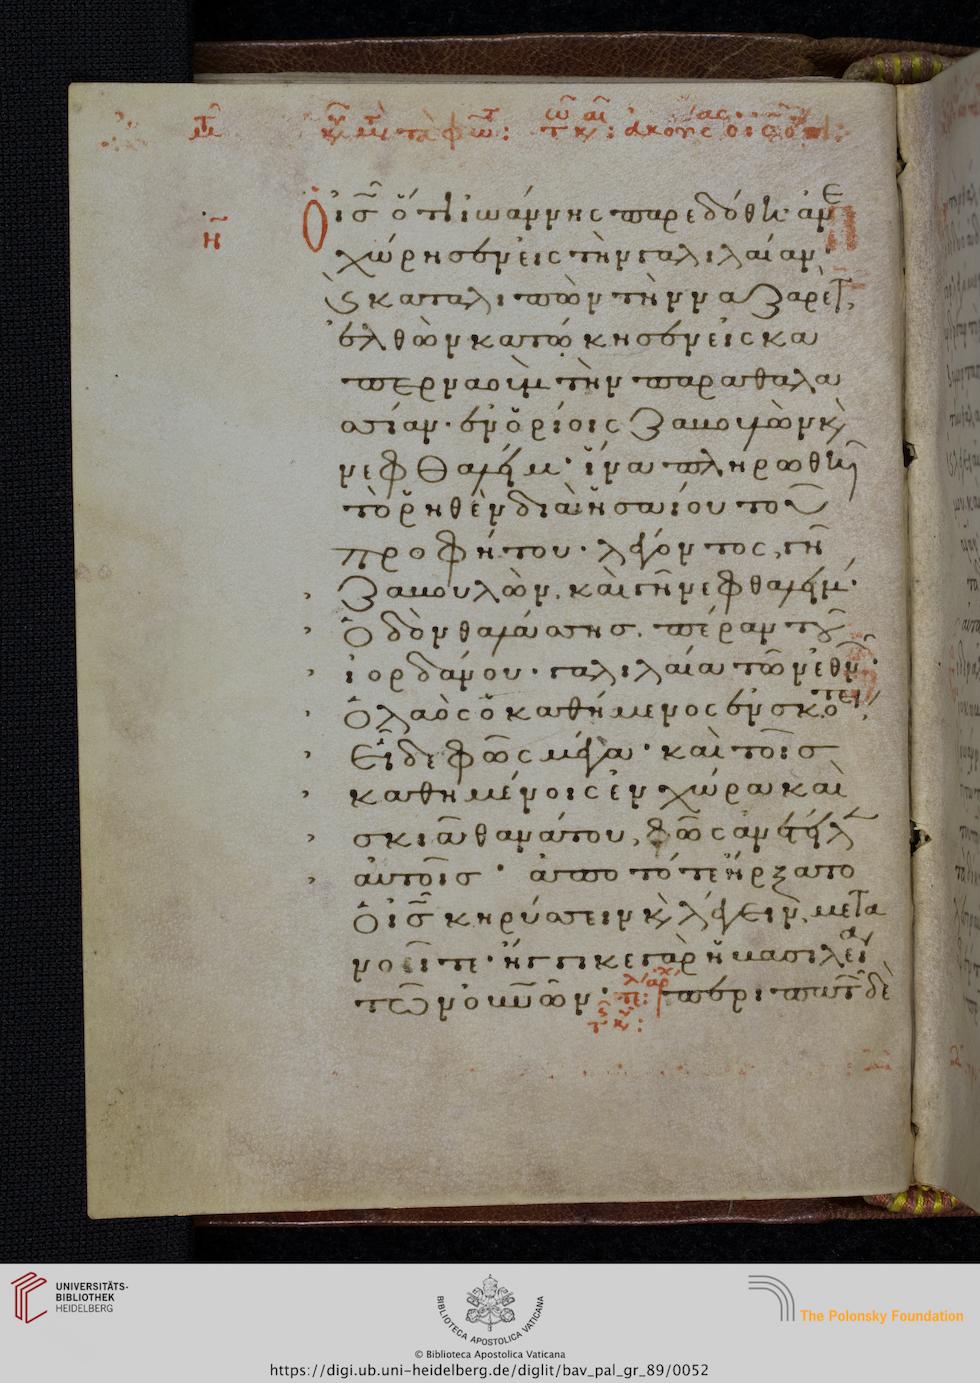 ὁ ἰς ὅτι ἰωάννης παρεδόθη· ἀνε
χώρησεν εἰς τὴν γαλιλαίαν·
καταλιπὼν τὴν ναζαρὲτ,
ἐλθὼν κατώκησεν εἰς κα
περναοὺμ τὴν παραθαλα
σσίαν· ἐν ὁρίοις ζαβουλὼν κ
νεφθαλήμ· ἵνα πληρωθῆ
τὸ ῥηθὲν διὰ ἡσαΐου τοῦ
προφήτου· λέγοντος, γῆ
ζαβουλὼν, καὶ γῆ νεφθαλήμ·
ὁδὸν θαλάσσης. πέραν τοῦ
ἰορδάνου· γαλιλαία τῶν ἐθνῶν·
ὁ λαὸς ὁ καθήμενος ἐν σκότει,
εἶδε φῶς μέγα· καὶ τοῖς
καθημένοις ἐν χώρα καὶ
σκιᾶ θανάτου, φῶς ἀνέτειλεν
αὐτοῖς· ἀπὸ τότε ἤρξατο
ὁ ἰς κηρύσσειν κ λέγειν, μετα
νοεῖτε· ἤγγικε γὰρ ἡ βασιλεία
τῶν οὐνῶν· περιπατῶν δὲ
UNIVERSITÄTS-
BIBLIOTHEK
HEIDELBERG
BIBLIOTECA APOSTOLICA VATICANA
The Polonsky Foundation
© Biblioteca Apostolica Vaticana
https://digi.ub.uni-heidelberg.de/diglit/bav_pal_gr_89/0052